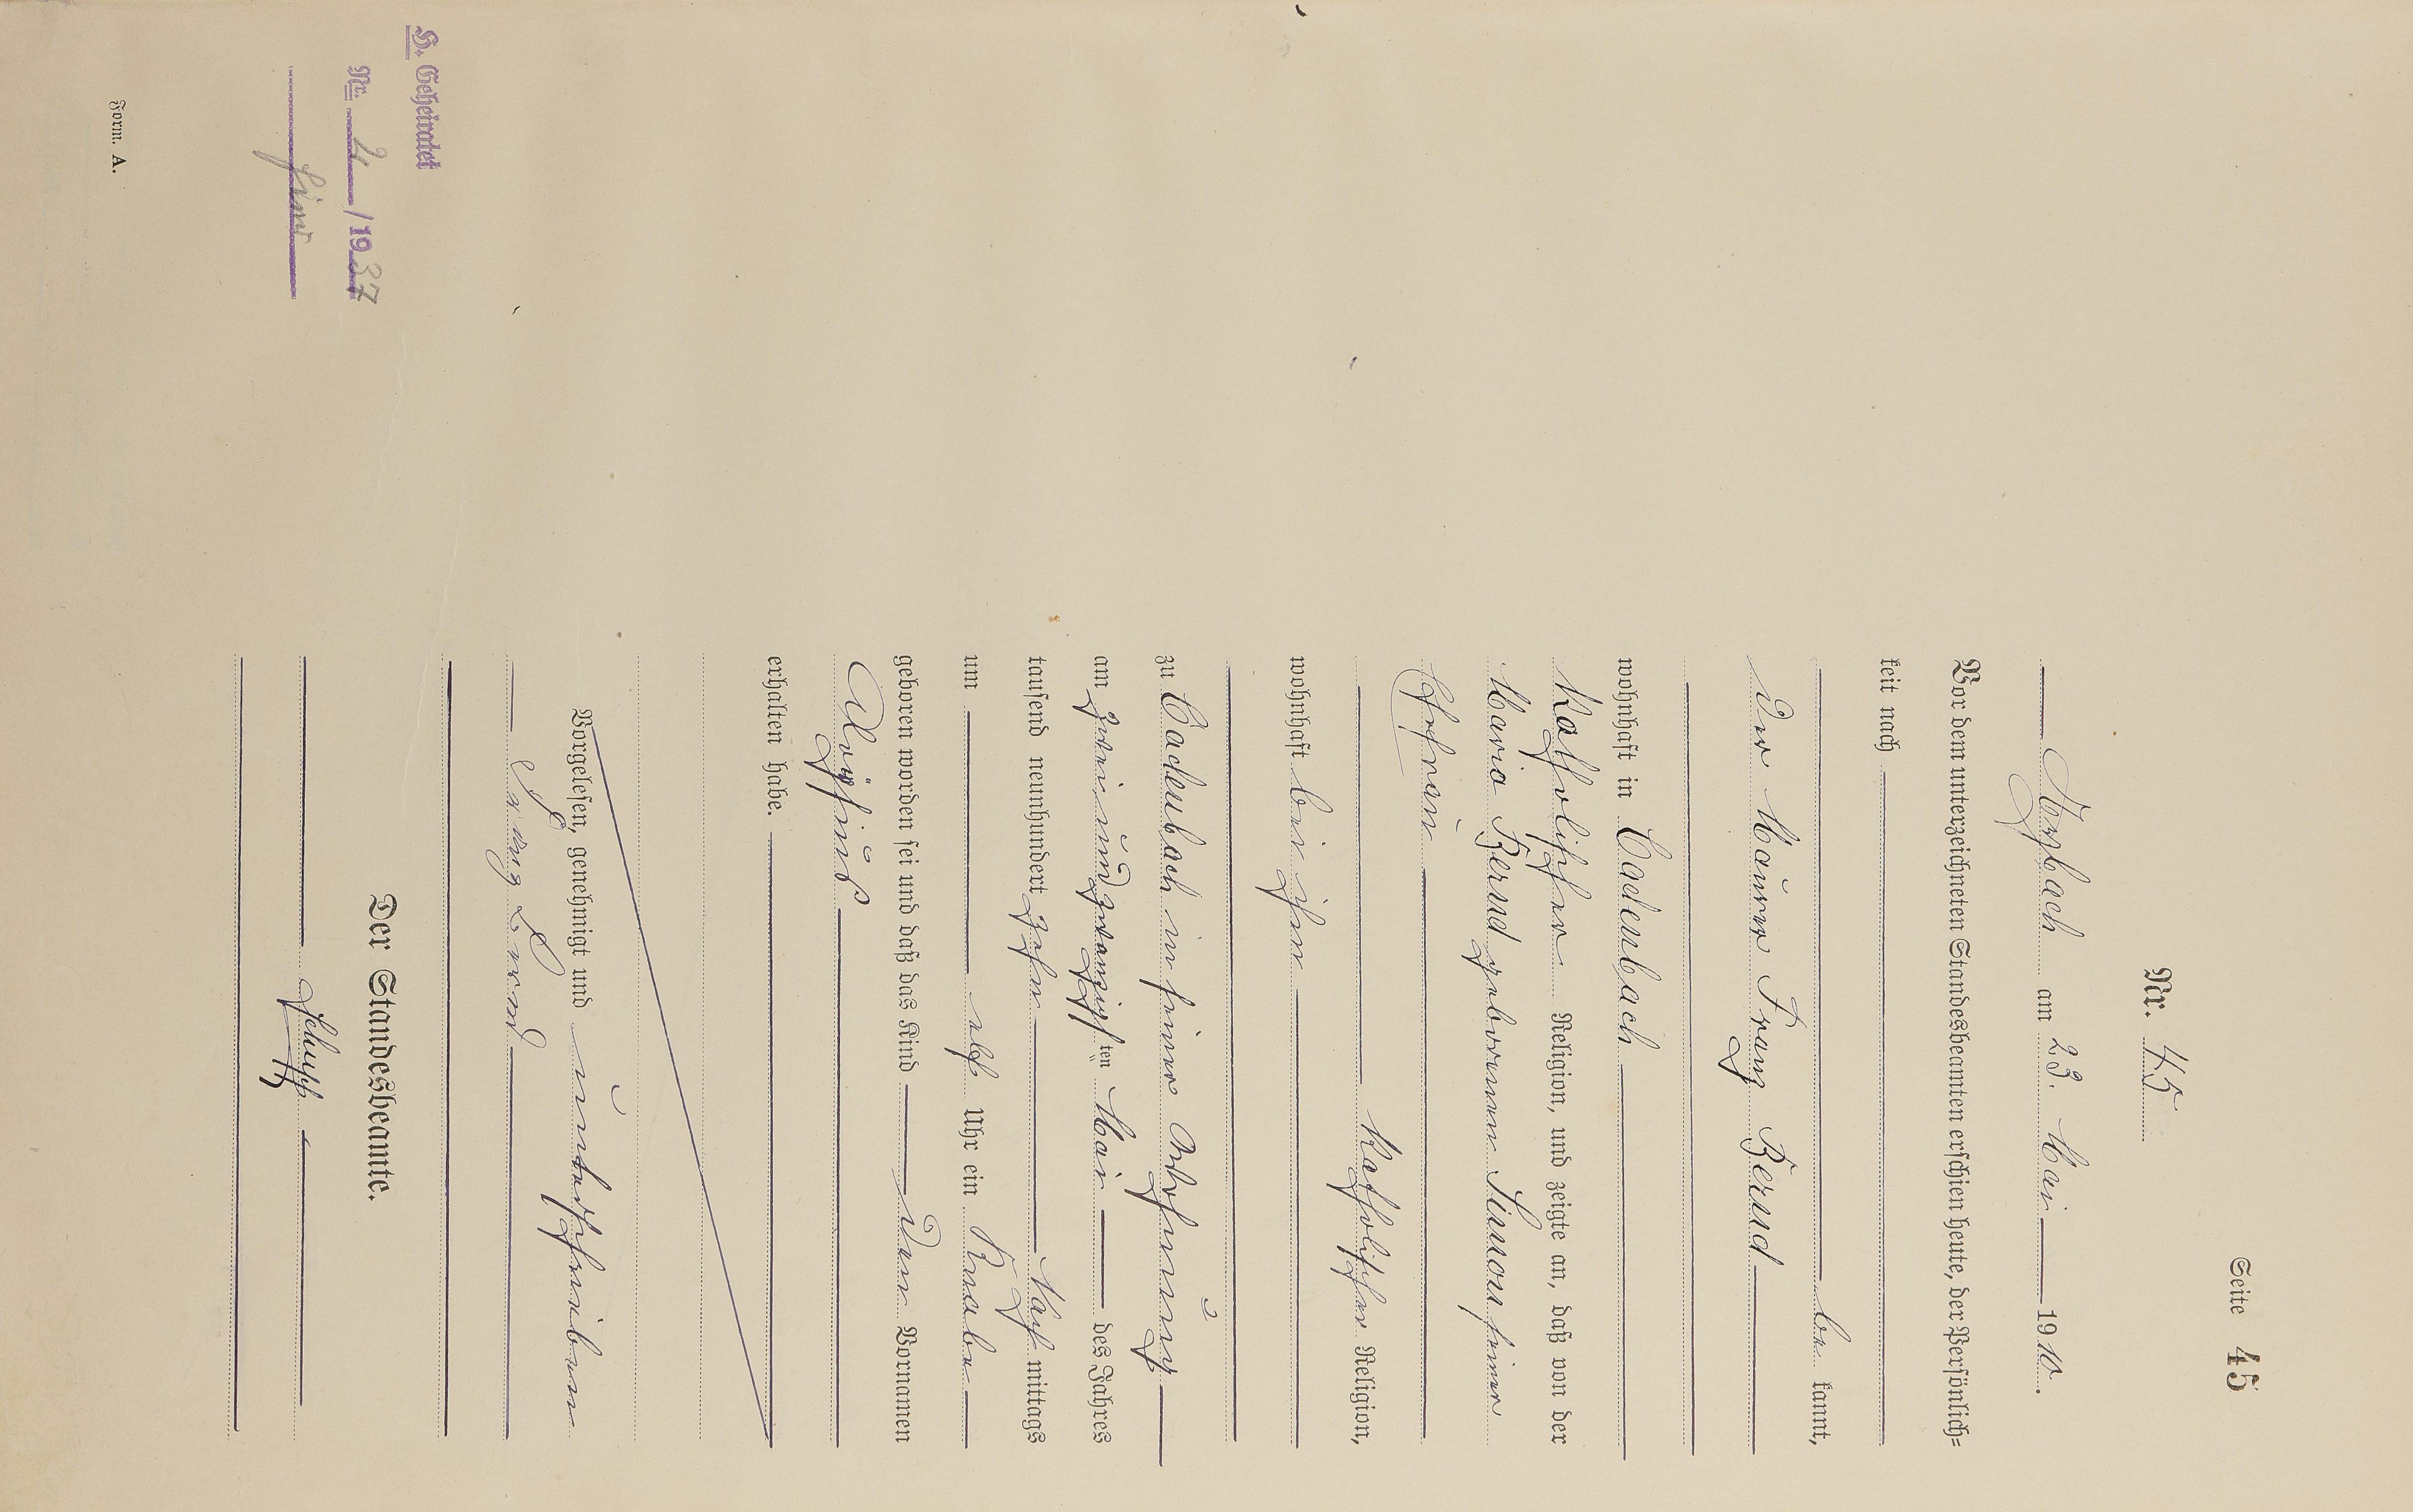 Seite 45
Nr. 45
Arzbach am 23. Mai 1910.
Vor dem unterzeichneten Standesbeamten erschien heute, der Persönlich=
keit nach
be kannt,
der Maurer Franz Bernd
wohnhaft in Cadenbach
katholischer Religion, und zeigte an, daß von der
Maria Bernd geborenen Simon seiner
Ehefrau
katholischer Religion,
wohnhaft bei ihm
zu Cadenbach in seiner Wohnung
am zwei und zwanzigs ten Mai des Jahres
tausend neunhundert zehn Nach mittags
um elf Uhr ein Knabe
geboren worden sei und daß das Kind den Vornamen
Aloysius
erhalten habe.
Vorgelesen, genehmigt und unterschrieben
Franz Bernd
Der Standesbeamte.
H. Geheiratet
Nr. 4/1937
Form. A.